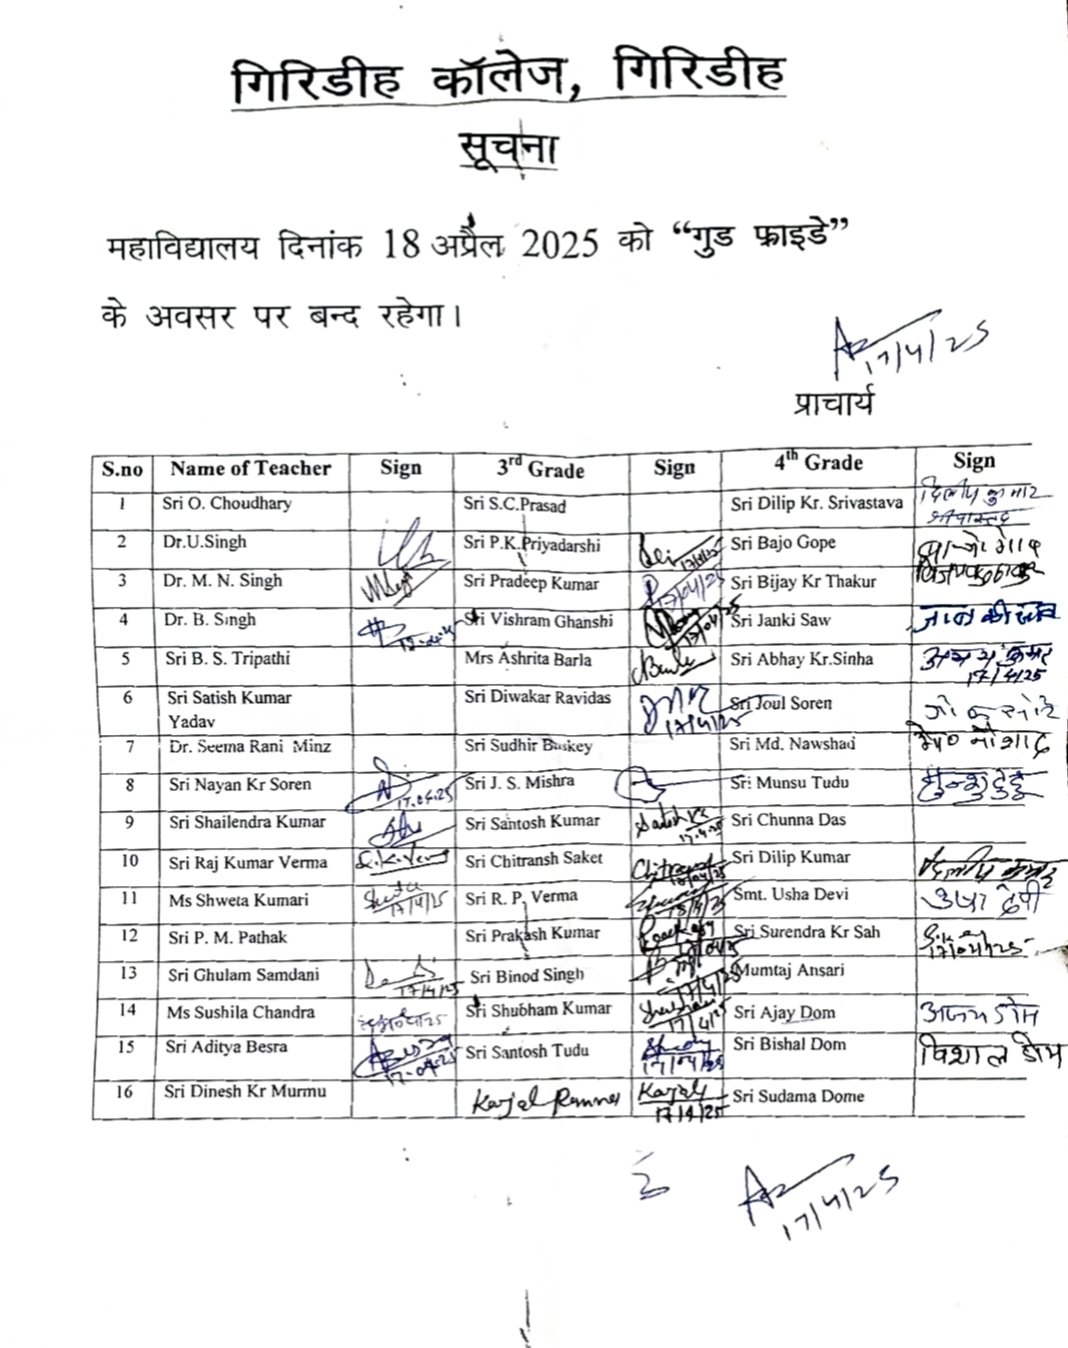 गिरिडीह कॉलेज, गिरिडीह
सूचना
महाविद्यालय दिनांक 18 अप्रैल 2025 को “गुड फ्राइडे”
के अवसर पर बन्द रहेगा।
17/4/25
प्राचार्य
S.no Name of Teacher Sign 3rd Grade Sign 4th Grade Sign
1 Sri O. Choudhary Sri S.C.Prasad Sri Dilip Kr. Srivastava दिलीप कुमार
श्रीवास्तव
2 Dr.U.Singh Sri P.K.Priyadarshi 17/4/25 Sri Bajo Gope
3 Dr. M. N. Singh Sri Pradeep Kumar 17/04/25 Sri Bijay Kr Thakur
4 Dr. B. Singh Sri Vishram Ghanshi 17/04/25 Sri Janki Saw
5 Sri B. S. Tripathi Mrs Ashrita Barla Sri Abhay Kr.Sinha अभय कुमार
17/4/25
6 Sri Satish Kumar Sri Diwakar Ravidas 17/4/25 Sri Joul Soren
Yadav
7 Dr. Seema Rani Minz Sri Sudhir Baskey Sri Md. Nawshad मो० नौशाद
8 Sri Nayan Kr Soren 17.04.25 Sri J. S. Mishra Sri Munsu Tudu मुन्शु टुडू
9 Sri Shailendra Kumar Sri Santosh Kumar 17.4.25 Sri Chunna Das
10 Sri Raj Kumar Verma S.K.Verma Sri Chitransh Saket Chitransh Sri Dilip Kumar दिलीप कुमार
11 Ms Shweta Kumari Shweta 17/4/25 Sri R. P. Verma 18/4/25 Smt. Usha Devi उषा देवी
12 Sri P. M. Pathak Sri Prakash Kumar Sri Surendra Kr Sah 17/04/25
13 Sri Ghulam Samdani 17/4/25 Sri Binod Singh 17/4/25 Mumtaj Ansari
14 Ms Sushila Chandra Sri Shubham Kumar Shubham 17/4/25 Sri Ajay Dom अजय डोम
15 Sri Aditya Besra 17.04.25 Sri Santosh Tudu 17/04/25 Sri Bishal Dom विशाल डोम
16 Sri Dinesh Kr Murmu Kajal 17/4/25 Sri Sudama Dome
17/4/25